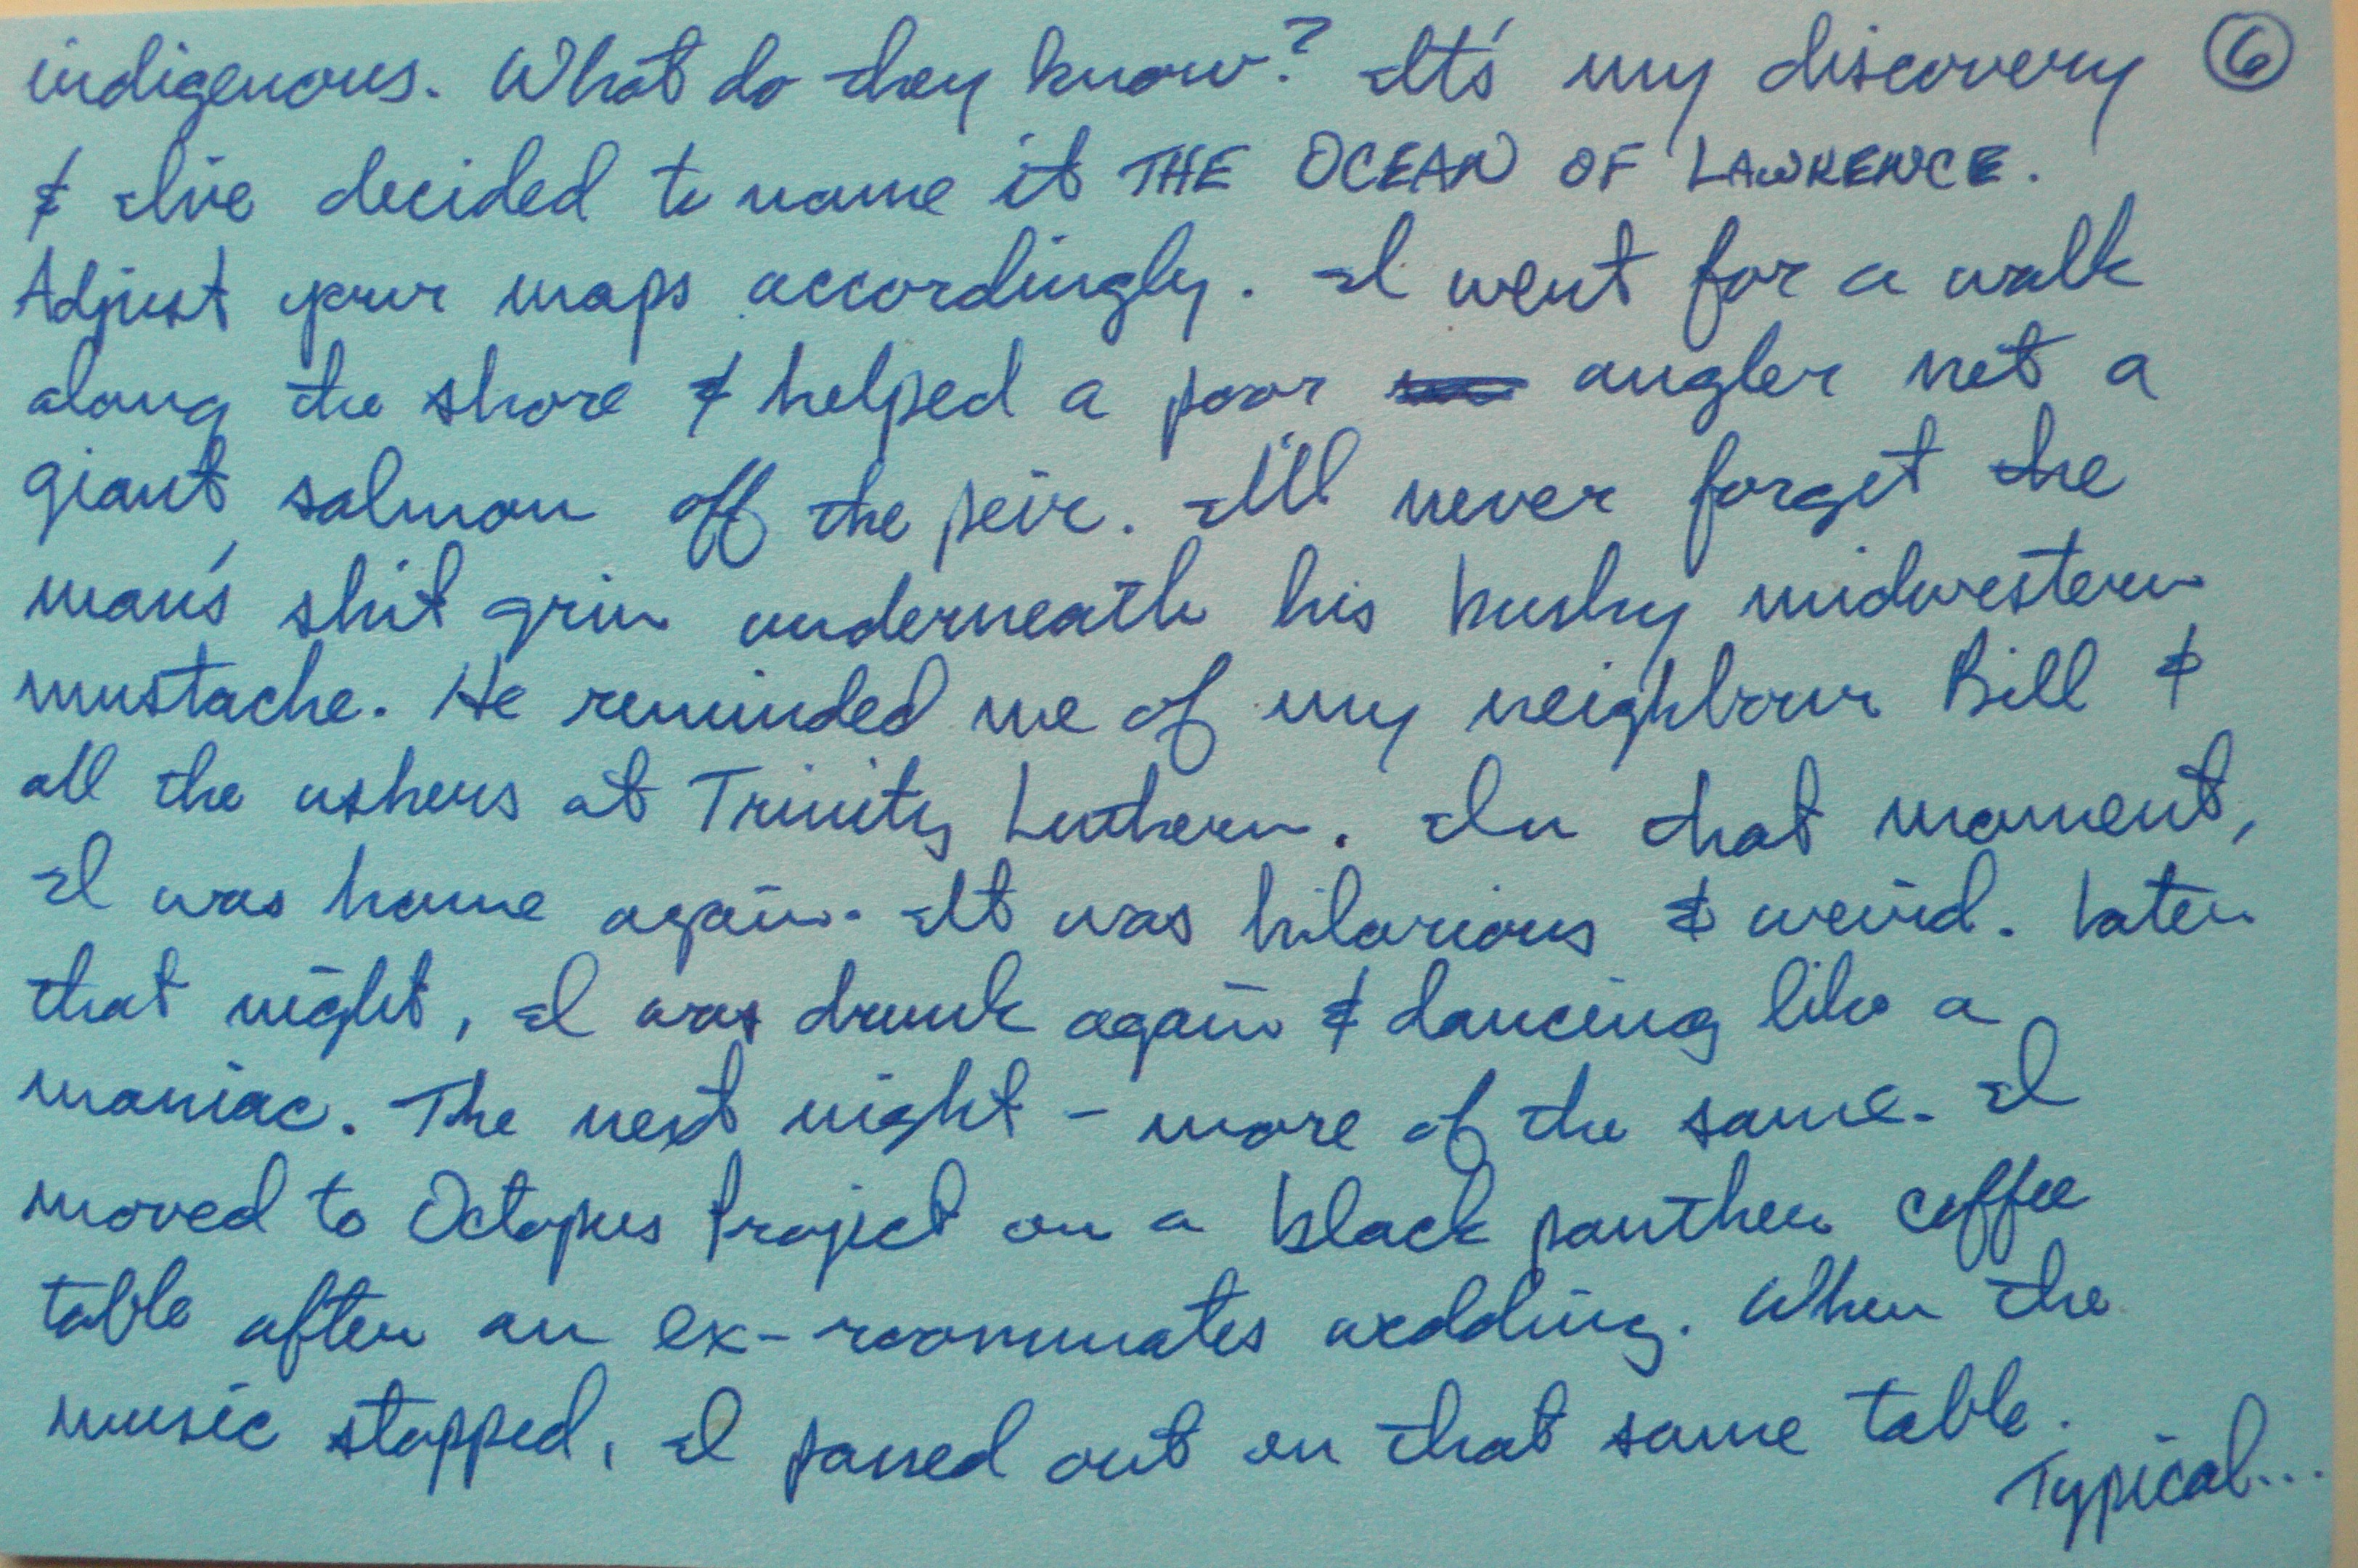 indigenous. What do they know? It's my discovery 6
& I've decided to name it THE OCEAN OF LAWRENCE.
Adjust your maps accordingly. I went for a walk
along the shore & helped a poor angler net a
giant salmon off the peir. I'll never forget the
man's shit grin underneath his bushy midwestern
mustache. He reminded me of my neighbour Bill &
all the ushers at Trinity Luthern. In that moment,
I was home again. It was hilarious & weird. Later
that night, I was drunk again & dancing like a
maniac. The next night - more of the same. I
moved to Octopus Project on a black panther coffee
table after an ex-roommates wedding. When the
music stopped, I passed out on that same table.
Typical...